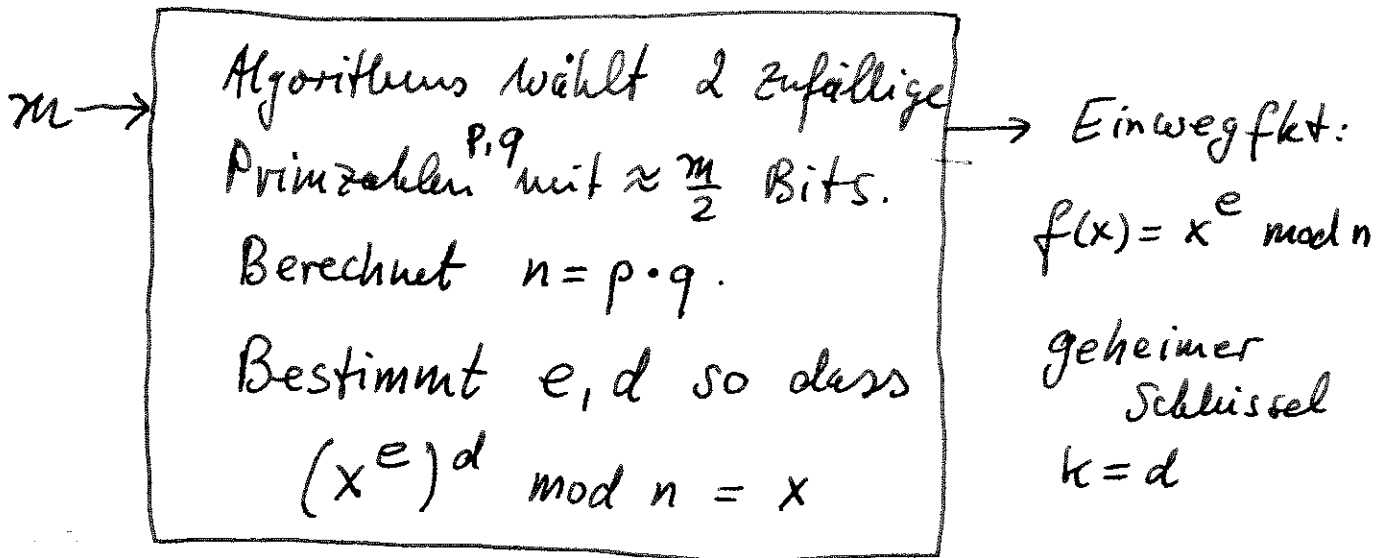 m →
Algorithmus wählt 2 zufällige
Primzahlen p,q mit ≈ m/2 Bits.
Berechnet n = p · q .
Bestimmt e, d so dass
(x^e)^d mod n = x
→ Einwegfkt:
f(x) = x^e mod n
geheimer
Schlüssel
k = d